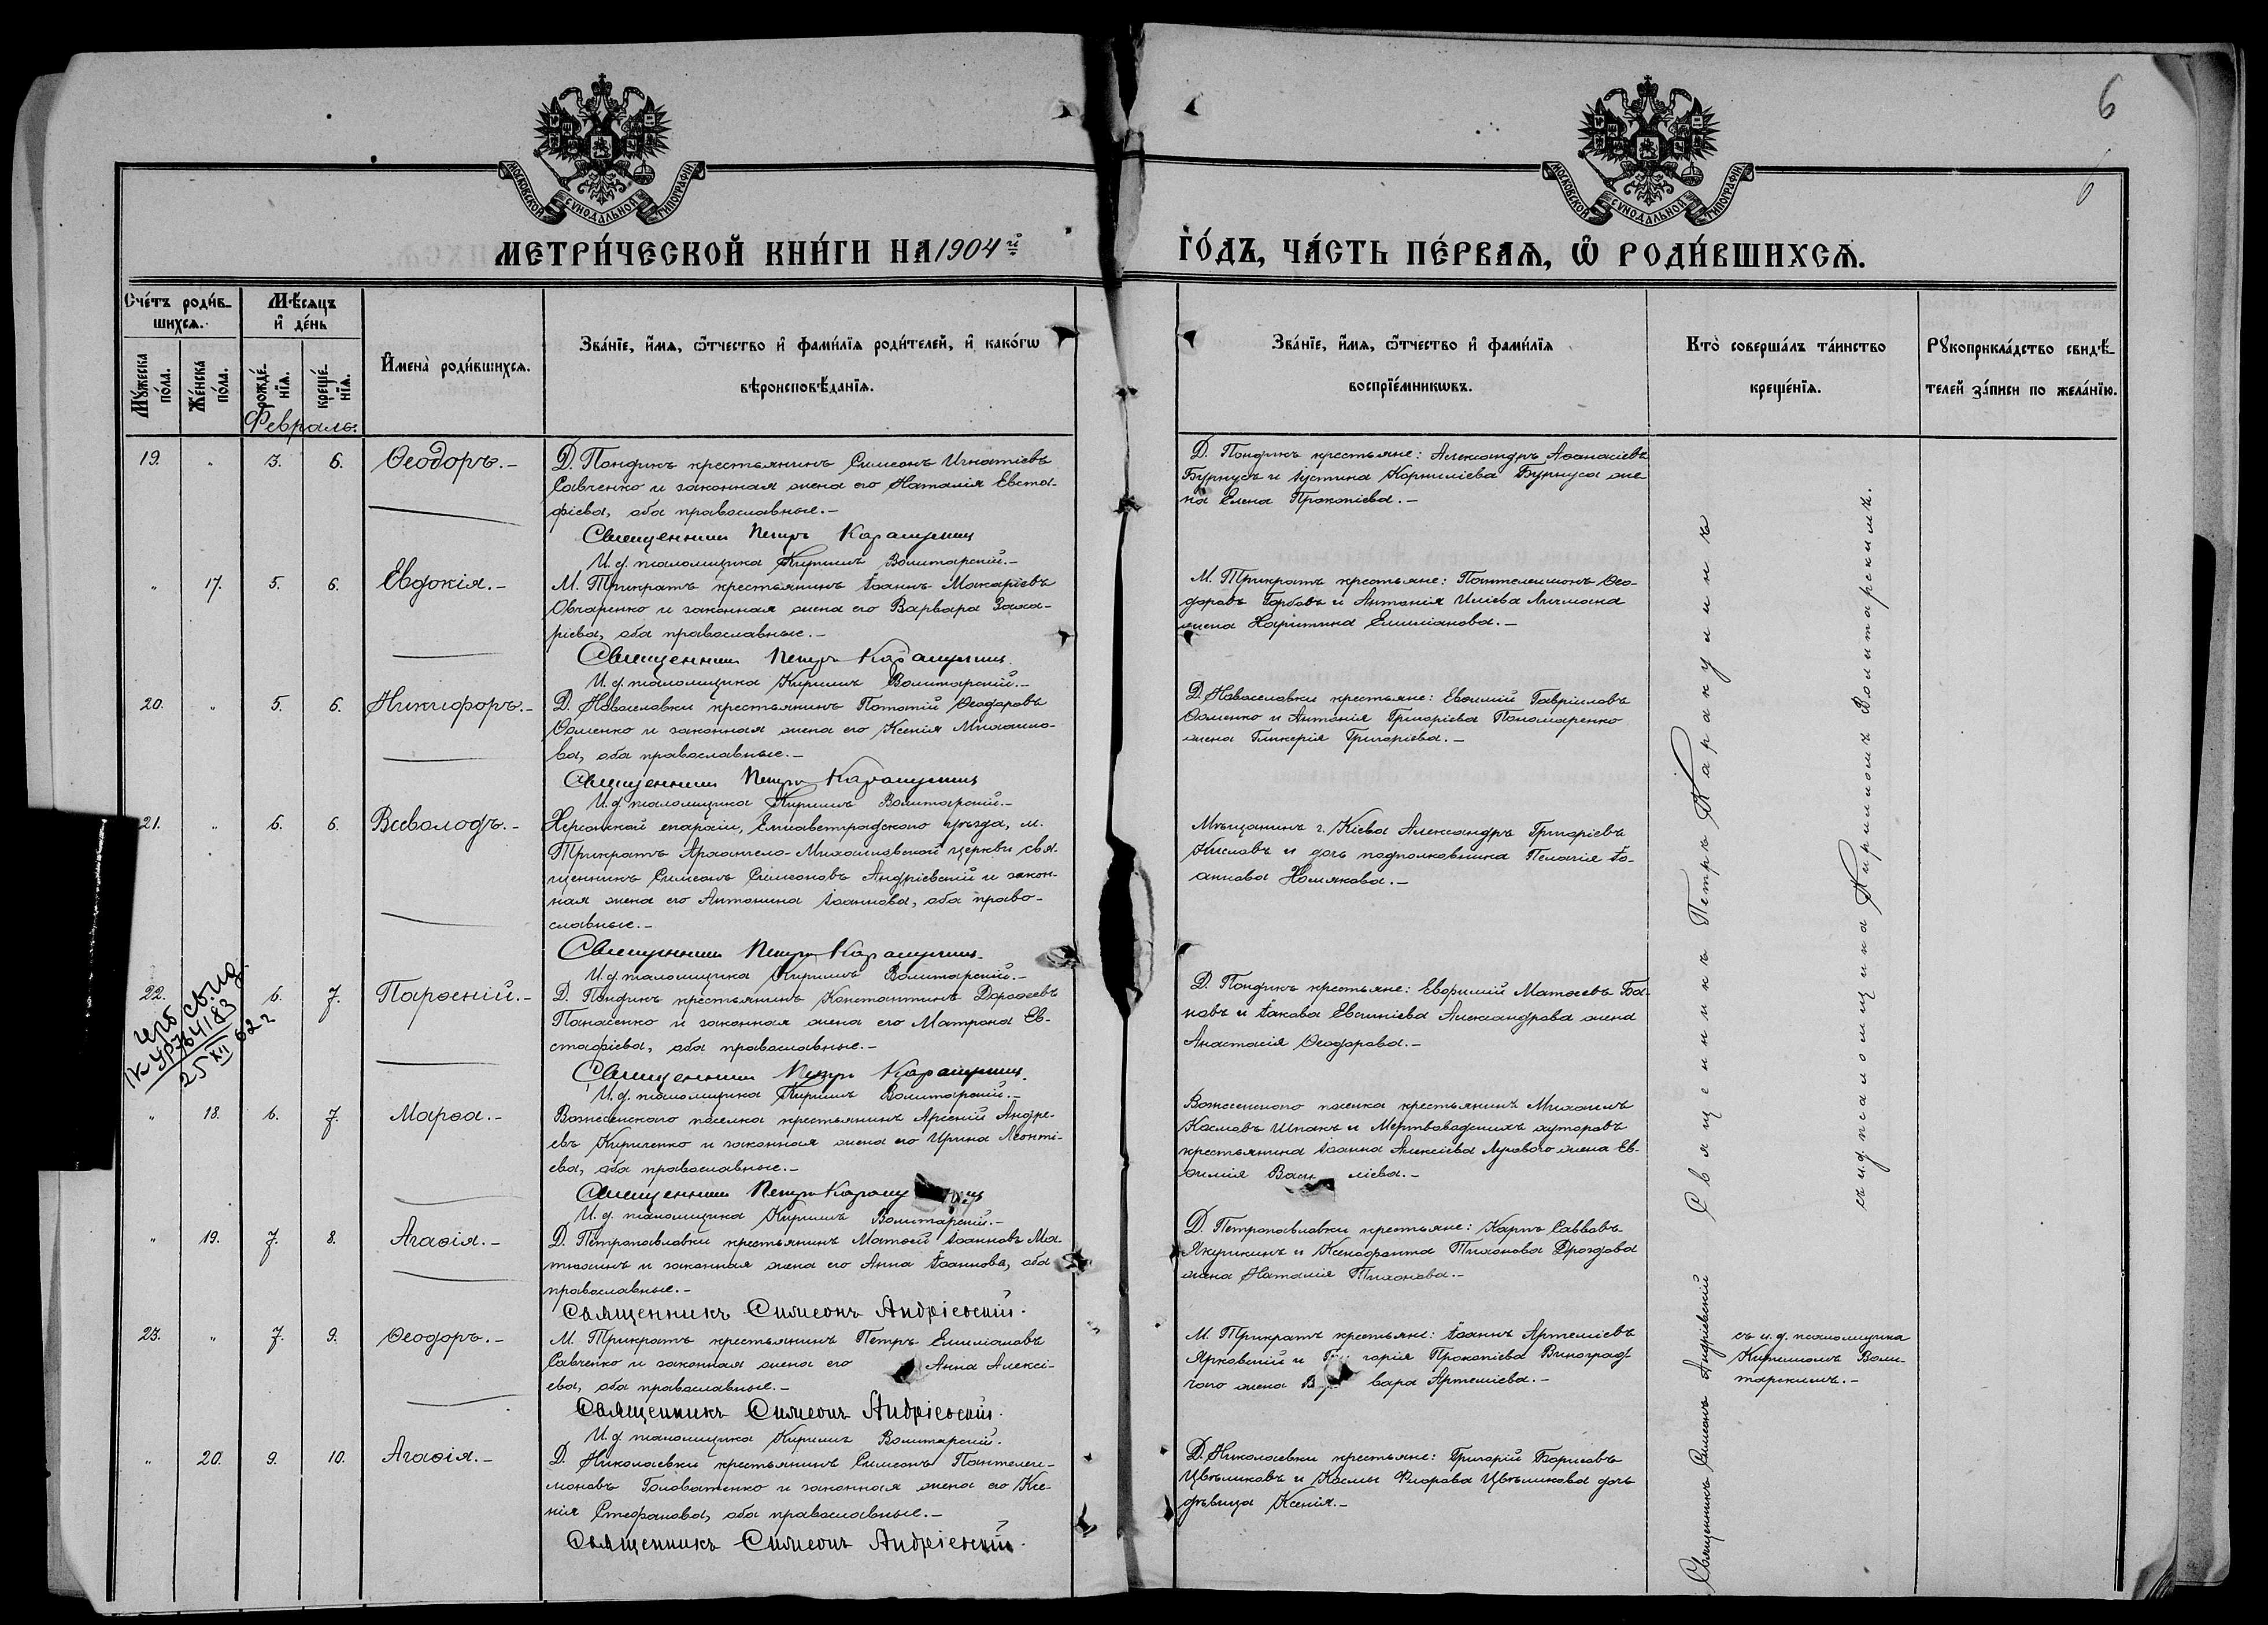 6
6
МОСКОВСКОЙ СѴНОДАЛЬНОЙ ТИПОГРАФІИ
МОСКОВСКОЙ СѴНОДАЛЬНОЙ ТИПОГРАФІИ
МЕТРИ́ЧЕСКОЙ КНИ́ГИ НА 1904й ГО́ДЪ, ЧА́СТЬ ПЕ́РВАѦ, Ѡ РОДИ́ВШИХСѦ.
Сче́тъ роди́в-
шихсѧ.
Мѣ́сѧцъ
и҆ де́нь
Мꙋ́жеска по́ла.
Же́нска по́ла.
рожде́-нїѧ.
креще́-нїѧ.
И҆мена̀ роди́вшихсѧ.
Зва́нїе, и҆́мѧ, ѻ҆́тчество и҆ фами́лїѧ роди́телей, и҆ како́гѡ
вѣроисповѣ́данїѧ.
Зва́нїе, и҆́мѧ, ѻ҆́тчество и҆ фами́лїѧ
воспрїе́мникѡвъ.
Кто̀ соверша́лъ та́инство
креще́нїѧ.
Рꙋкоприкла́дство свидѣ́-
телей за́писи по жела́нїю.
Февраль.
19. " 3. 6. Ѳеодоръ.-
Д. Пондикъ крестьянинъ Симеонъ Игнатіевъ
Савченко и законная жена его Наталія Евста-
фіева, оба православные.-
Священникъ Петръ Каракулинъ
И. д. псаломщика Кириллъ Волитарскій.-
Д. Пондикъ крестьяне: Александръ Аѳанасіевъ
Бурнусъ и Іустина Корниліева Бурнуса же-
на Елена Прокопіева.-
" 17. 5. 6. Евдокія.-
М. Трикратъ крестьянинъ Іоаннъ Макаріевъ
Овчаренко и законная жена его Варвара Заха-
ріева, оба православные.-
Священникъ Петръ Каракулинъ
И. д. псаломщика Кириллъ Волитарскій.-
М. Трикратъ крестьяне: Пантелеимонъ Ѳео-
доровъ Горбовъ и Антонія Иліева Личмана
жена Харитина Емиліанова.-
20. " 5. 6. Никифоръ.-
Д. Новоселовки крестьянинъ Потапій Ѳеодоровъ
Ѳоменко и законная жена его Ксенія Михаило-
ва, оба православные.-
Священникъ Петръ Каракулинъ
И. д. псаломщика Кириллъ Волитарскій.-
Д. Новоселовки крестьяне: Евѳимій Гавріиловъ
Ѳоменко и Антонія Григоріева Пономаренко
жена Гликерія Григоріева.-
21. " 6. 6. Всеволодъ.-
Херсонской епархіи, Елисаветградского уѣзда, м.
Трикратъ Архангело-Михаиловской церкви свя-
щенникъ Симеонъ Симеоновъ Андріевскій и закон-
ная жена его Антонина Іоаннова, оба право-
славные.-
Священникъ Петръ Каракулинъ
И. д. псаломщика Кириллъ Волитарскій.-
Мѣщанинъ г. Кіева Александръ Григоріевъ
Кисловъ и дочь подполковника Пелагія Іо-
аннова Хомякова.-
22. " 6. 7. Парѳеній.-
Д. Пондикъ крестьянинъ Константинъ Дороѳеевъ
Панасенко и законная жена его Матрона Ев-
стафіева, оба православные.-
Священникъ Петръ Каракулинъ
И. д. псаломщика Кириллъ Волитарскій.-
Д. Пондикъ крестьяне: Евфимій Матѳеевъ Ба-
новъ и Іакова Евѳиміева Александрова жена
Анастасія Ѳеодорова.-
25 XII 62 г
" 18. 6. 7. Марѳа.-
Вознесенского поселка крестьянинъ Арсеній Андре-
евъ Кириченко и законная жена его Ирина Леонті-
ева, оба православные.-
Священникъ Петръ Каракулинъ
И. д. псаломщика Кириллъ Волитарскій.-
Вознесенского поселка крестьянинъ Михаилъ
Космовъ Шпакъ и Мертвоводскихъ хуторовъ
крестьянина Іоанна Алексіева Лугового жена Ев-
ѳимія Васи ліева.-
" 19. 7. 8. Агаѳія.-
Д. Петропавловки крестьянинъ Матѳей Іоанновъ Ма-
тюхинъ и законная жена его Анна Іоаннова, оба
православные.-
Священникъ Симеонъ Андріевскій.
Д. Петропавловки крестьяне: Карпъ Саввовъ
Якушкинъ и Ксенофонта Тихонова Дроздова
жена Наталія Тихонова.-
23. " 7. 9. Ѳеодоръ.-
М. Трикратъ крестьянинъ Петръ Емиліановъ
Савченко и законная жена его Анна Алексі-
ева, оба православные.-
Священникъ Симеонъ Андріевскій.
И. д. псаломщика Кириллъ Волитарскій.
М. Трикратъ крестьяне: Іоаннъ Артеміевъ
Ярковскій и Гри горія Прокопіева Виноград-
чего жена Вар вара Артеміева.-
" 20. 9. 10. Агаѳія.-
Д. Николаевки крестьянинъ Симеонъ Пантелеи-
моновъ Головатенко и законная жена его Ксе-
нія Стефанова, оба православные.-
Священникъ Симеонъ Андріевскій.
Д. Николаевки крестьяне: Григорій Борисовъ
Цвѣликовъ и Космы Флорова Цвѣликова дочь
дѣвица Ксенія.-
Священникъ Петръ Каракулинъ
съ и.д. псаломщика Кирилломъ Волитарскимъ.
Священникъ Симеонъ Андріевскій
съ и. д. псаломщика
Кирилломъ Воли-
тарскимъ.-